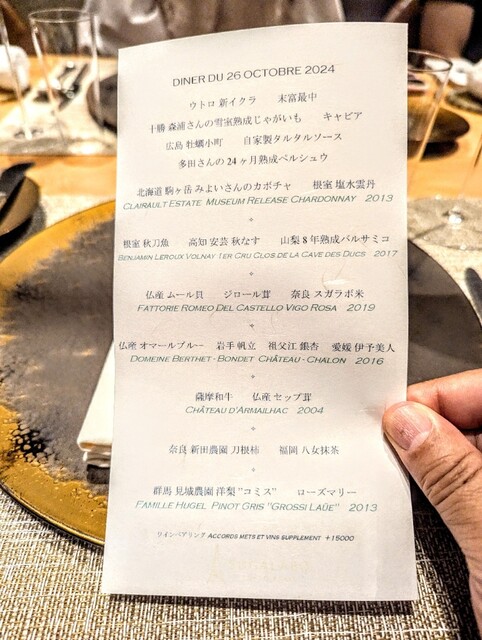 DINER DU 26 OCTOBRE 2024
ウトロ 新イクラ 末富最中
十勝 森浦さんの雪室熟成じゃがいも キャビア
広島 牡蠣小町 自家製タルタルソース
多田さんの24ヶ月熟成ペルシュウ
北海道 駒ヶ岳 みよいさんのカボチャ 根室 塩水雲丹
CLAIRAULT ESTATE MUSEUM RELEASE CHARDONNAY 2013
根室 秋刀魚 高知 安芸 秋なす 山梨 8年熟成バルサミコ
BENJAMIN LEROUX VOLNAY 1ER CRU CLOS DE LA CAVE DES DUCS 2017
仏産 ムール貝 ジロール茸 奈良 スガラボ米
FATTORIE ROMEO DEL CASTELLO VIGO ROSA 2019
仏産 オマールブルー 岩手 帆立 祖父江 銀杏 愛媛 伊予美人
DOMEINE BERTHET-BONDET CHÂTEAU-CHALON 2016
薩摩和牛 仏産 セップ茸
CHÂTEAU D'ARMAILHAC 2004
奈良 新田農園 刀根柿 福岡 八女抹茶
群馬 見城農園 洋梨"コミス" ローズマリー
FAMILLE HUGEL PINOT GRIS "GROSSI LAÜE" 2013
ワインペアリング ACCORDS METS ET VINS SUPPLEMENT +15000